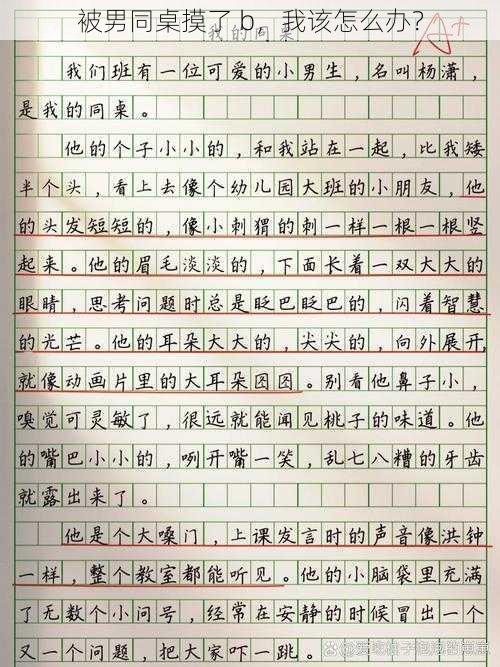 被男同桌摸了 b，我该怎么办？
我的同桌
A+
我们班有一位可爱的小男生，名叫杨潇，
是我的同桌。
他的个子小小的，和我站在一起，比我矮
半个头，看上去像个幼儿园大班的小朋友，他
的头发短短的，像小刺猬的刺一样一根一根竖
起来。他的眉毛淡淡的，下面长着一双大大的
眼睛，思考问题时总是眨巴眨巴的，闪着智慧
的光芒。他的耳朵大大的，尖尖的，向外展开，
就像动画片里的大耳朵图图。别看他鼻子小，
嗅觉可灵敏了，很远就能闻见桃子的味道。他
的嘴巴小小的，咧开嘴一笑，乱七八糟的牙齿
就露出来了。
他是个大嗓门，上课发言时的声音像洪钟
一样，整个教室都能听见。他的小脑袋里充满
了无数个小问号，经常在安静的时候冒出一个
又一个问题，把大家吓一跳。